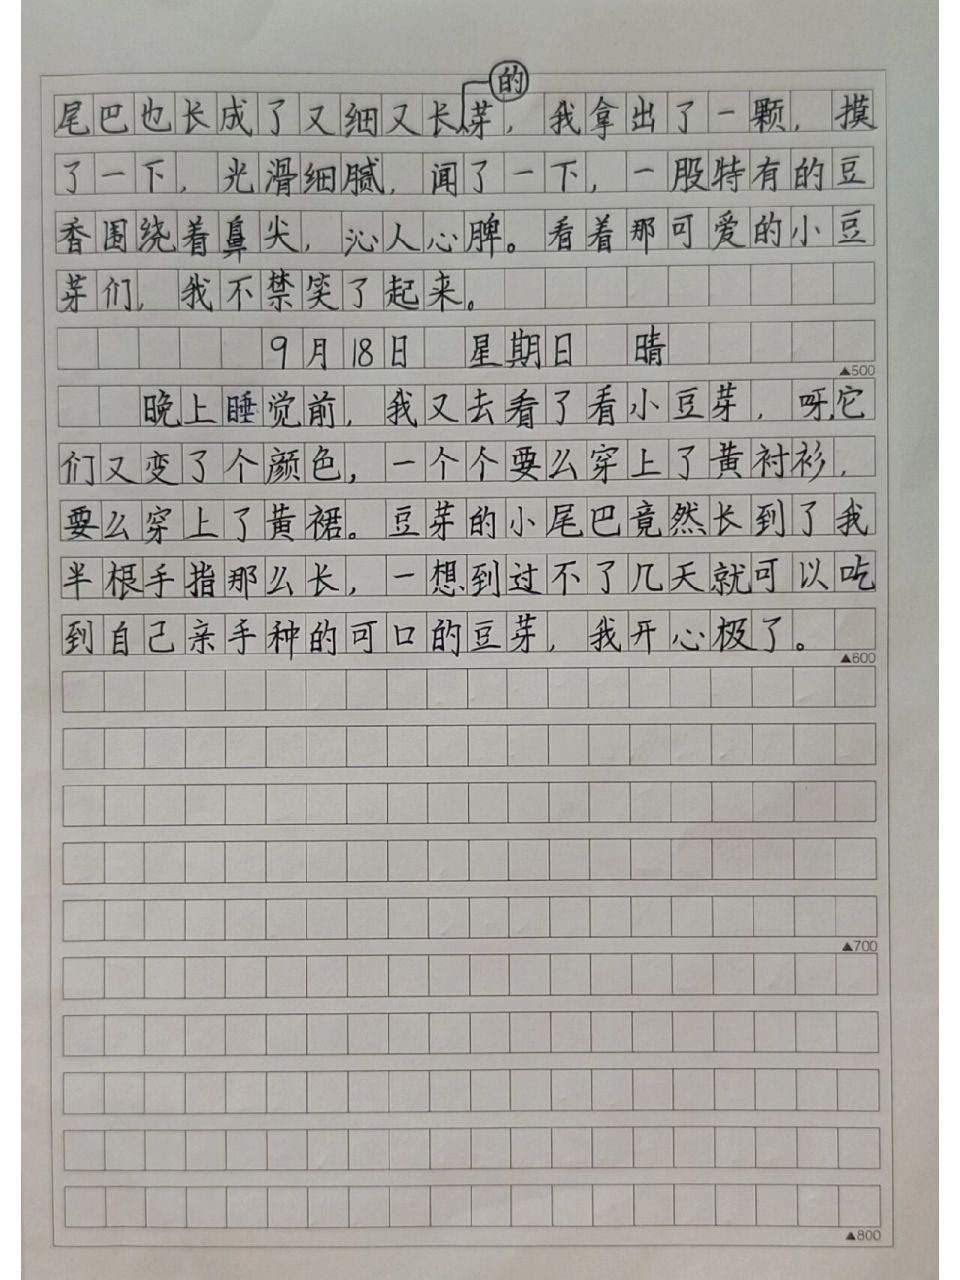 尾巴也长成了又细又长的芽，我拿出了一颗，摸
了一下，光滑细腻，闻了一下，一股特有的豆
香围绕着鼻尖，沁人心脾。看着那可爱的小豆
芽们，我不禁笑了起来。
9月18日 星期日 晴
▲500
晚上睡觉前，我又去看了看小豆芽，呀，它
们又变了个颜色，一个个要么穿上了黄衬衫，
要么穿上了黄裙。豆芽的小尾巴竟然长到了我
半根手指那么长，一想到过不了几天就可以吃
到自己亲手种的可口的豆芽，我开心极了。
▲600
▲700
▲800